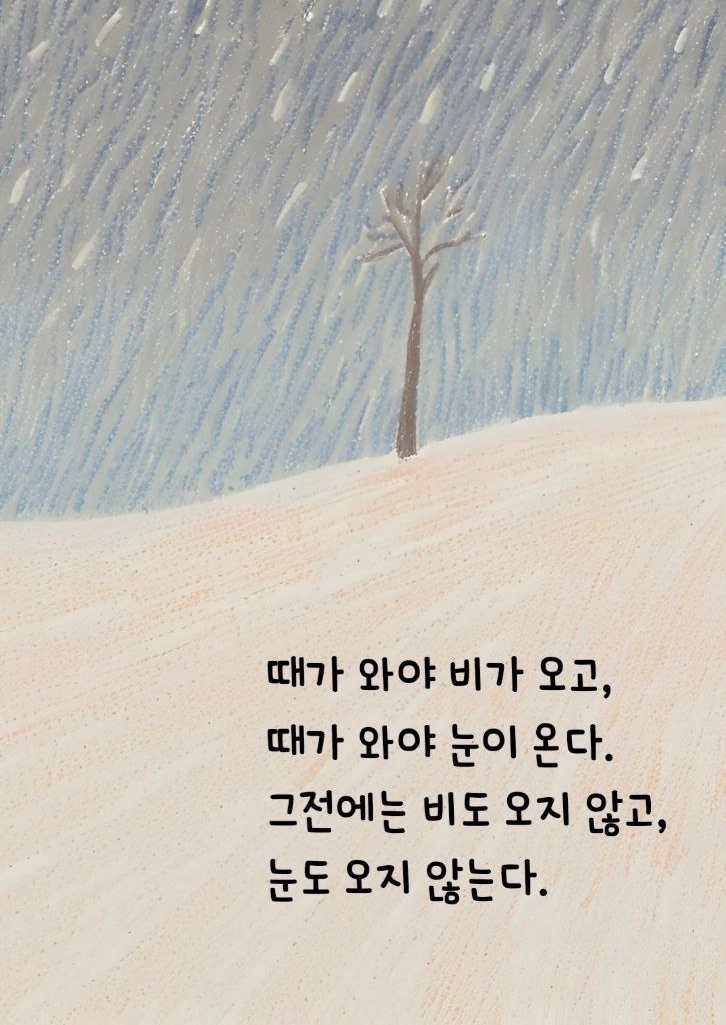 때가 와야 비가 오고,
때가 와야 눈이 온다.
그전에는 비도 오지 않고,
눈도 오지 않는다.